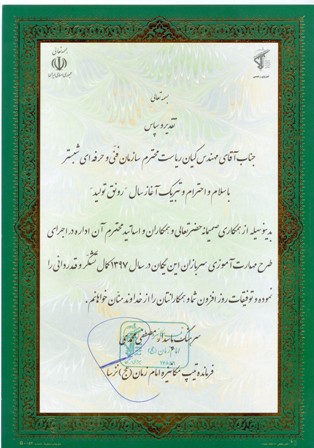 بسمه تعالی
جمهوری اسلامی ایران
بسمه تعالی
تقدیر و سپاس
جناب آقای مهندس کیان ریاست محترم سازمان فنی و حرفه ای شبستر
با سلام و احترام و تبریک آغاز سال "رونق تولید"
بدینوسیله از همکاری صمیمانه حضرتعالی و همکاران و اساتید محترم آن اداره در اجرای
طرح مهارت آموزی سربازان این یگان در سال ۱۳۹۷ کمال تشکر و قدردانی را
نموده و توفیقات روز افزون شما و همکارانتان را از خداوند منان خواهانم.
سرهنگ پاسدار مصطفی محمدی
فرمانده تیپ مکانیزه امام زمان (عج)